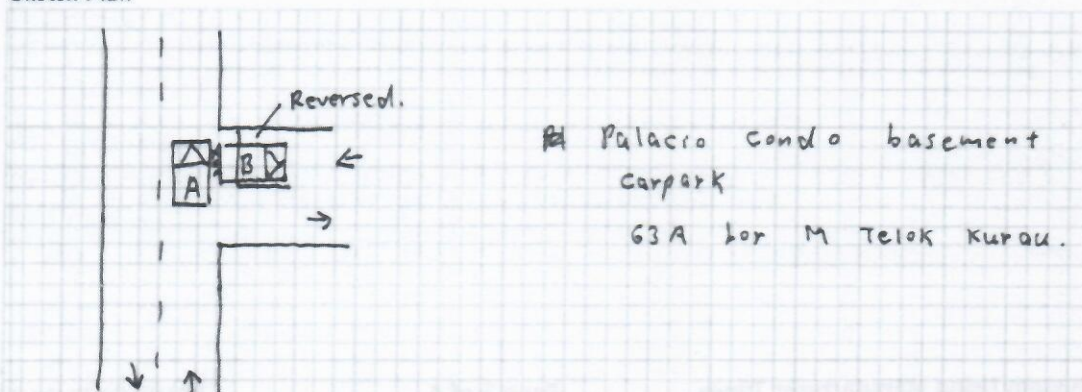 Reversed.
Palacio condo basement
carpark
63A Lor M Telok Kurau.
B
A